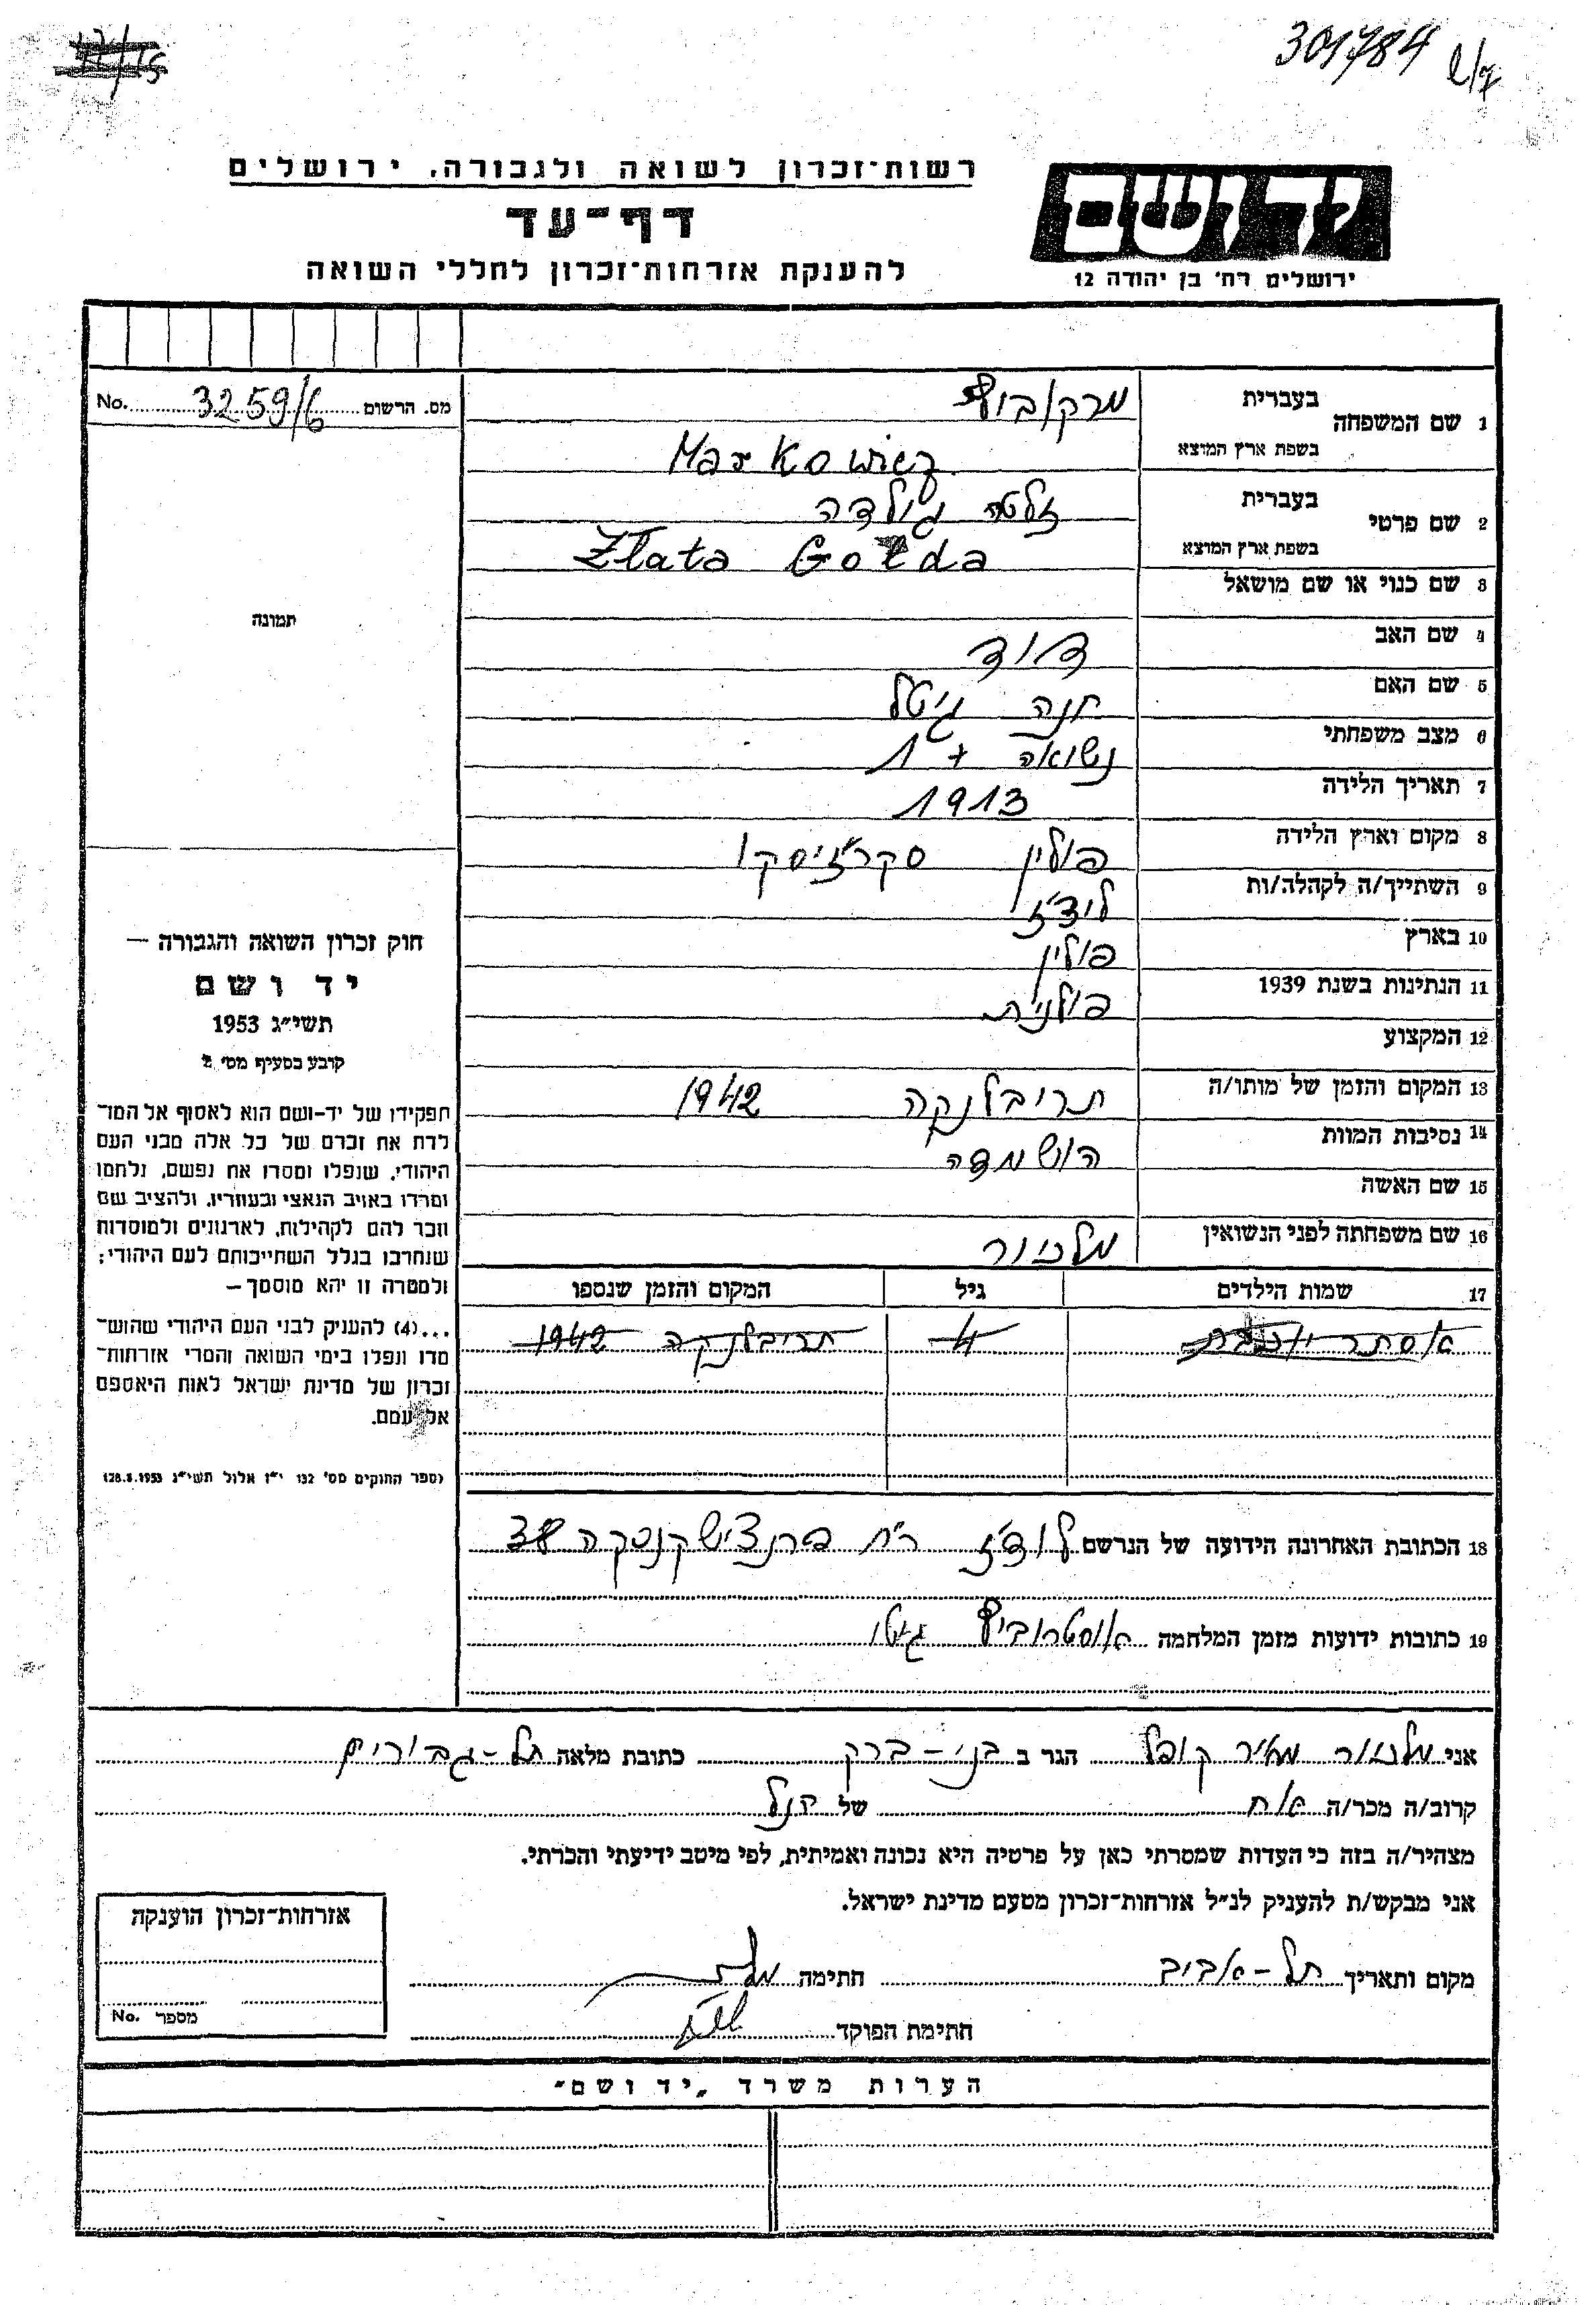 301784
רשות־זכרון לשואה ולגבורה, ירושלים
דף־עד
להענקת אזרחות־זכרון לחללי השואה
יד ושם
ירושלים רח' בן יהודה 12
מס. הרשום 3259/6 No.
1 שם המשפחה
בעברית מרקוביץ
בשפת ארץ המוצא Markowicz
2 שם פרטי
בעברית זלטה גולדה
בשפת ארץ המוצא Złata Gołda
3 שם כנוי או שם מושאל
4 שם האב דוד
5 שם האם חנה גיטל
6 מצב משפחתי נשואה + 1
7 תאריך הלידה 1913
8 מקום וארץ הלידה פולין סקרז'יסקו
9 השתייך/ה לקהלה/ות לודז'
10 בארץ פולין
11 הנתינות בשנת 1939 פולנית
12 המקצוע
13 המקום והזמן של מותו/ה תריבלנקה 1942
14 נסיבות המוות הושמדה
15 שם האשה
16 שם משפחתה לפני הנשואין מלניאור
17 שמות הילדים גיל המקום והזמן שנספו
אסתר 4 תריבלנקה 1942
18 הכתובת האחרונה הידועה של הנרשם לודז' רח' פרנצישקנסקה 38
19 כתובות ידועות מזמן המלחמה אוסטרוביץ גיטו
תמונה
חוק זכרון השואה והגבורה —
יד ושם
תשי״ג 1953
קובע בסעיף מס׳ 2
תפקידו של יד־ושם הוא לאסוף אל המו־
לדת את זכרם של כל אלה מבני העם
היהודי, שנפלו ומסרו את נפשם, נלחמו
ומרדו באויב הנאצי ובעוזריו, ולהציב שם
וזכר להם לקהילות, לארגונים ולמוסדות
שנחרבו בגלל השתייכותם לעם היהודי;
ולמטרה זו יהא מוסמך —
...(4) להעניק לבני העם היהודי שהוש־
מדו ונפלו בימי השואה והמרי אזרחות־
זכרון של מדינת ישראל לאות היאספם
אל עמם.
(ספר החוקים מס' 132 י״ז אלול תשי״ג 28.8.1953)
אני מאיר קופל הגר ב בני־ברק כתובת מלאה תל־גבורים
קרוב/ה מכר/ה אח של הנ״ל
מצהיר/ה בזה כי העדות שמסרתי כאן על פרטיה היא נכונה ואמיתית, לפי מיטב ידיעתי והכרתי.
אני מבקש/ת להעניק לנ״ל אזרחות־זכרון מטעם מדינת ישראל.
מקום ותאריך תל־אביב חתימה
חתימת הפוקד
אזרחות־זכרון הוענקה
מספר No.
הערות משרד „יד ושם״